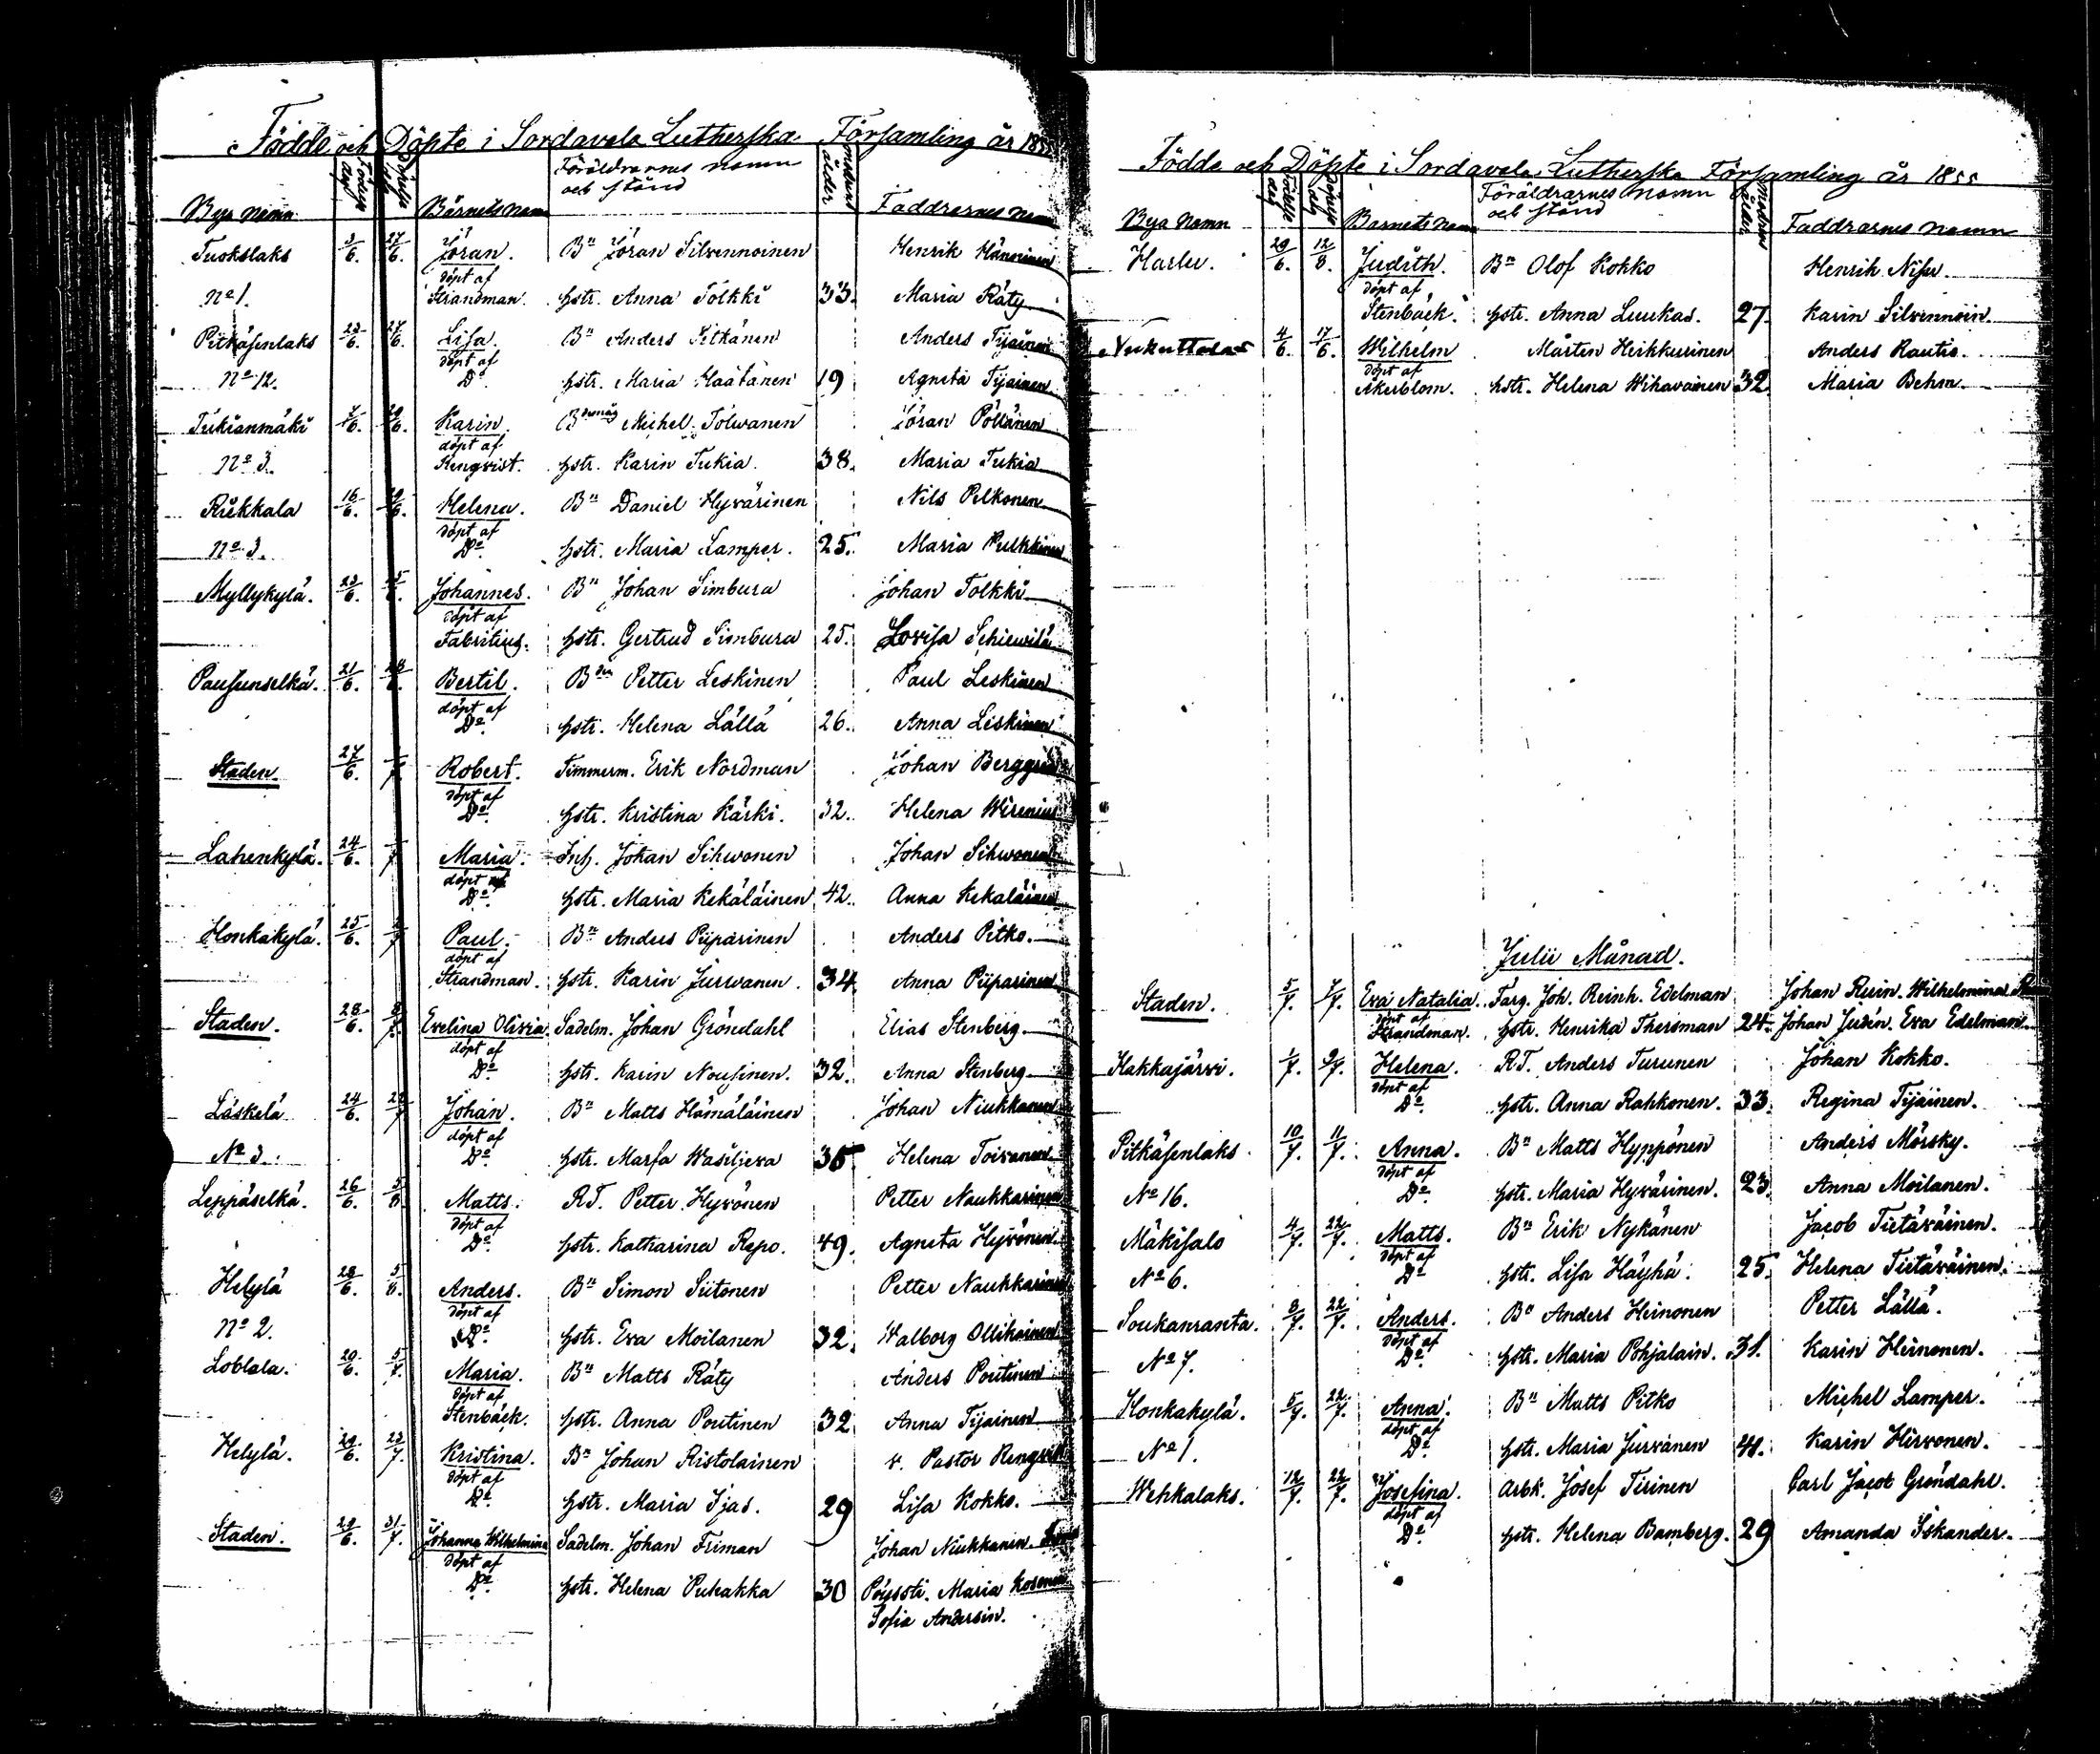 Födde och Döpte i Sordavala Lutherska Församling år 1855
Bya namn Födelse dag Döpelse dag Barnets namn Föräldrarnes namn och stånd modrens ålder Faddrarnes namn
Tuokslaks 3/6. 27/6. Jöran. Bn Jöran Silvennoinen Henrik Hänninen
No 1. döpt af Strandman. hstr. Anna Tolkki 33. Maria Räty
Pitkäsenlaks 23/6. 27/6. Lisa. Bn Anders Pitkänen Anders Tijäinen
No 12. döpt af Do hstr. Maria Maatanen 19 Agneta Tijainen
Tukianmäki 7/6. Karin. Michel Tolwanen Jöran Pöllänen
No 3. döpt af Renqvist. hstr. Karin Tukia. 38. Maria Tukia
Riekkala 16/6. Helena. Bn Daniel Hyvärinen Nils Pelkonen
No 3. döpt af Do. hstr. Maria Lamper. 25. Maria Pulkkinen
Myllykylä. 23/6. Johannes. Bn Johan Simbura Johan Tolkki
döpt af Fabritius. hstr. Gertrud Simbura 25. Lovisa Schiewilä
Pausunselkä. 21/6. Bertil. Bdn Petter Leskinen Paul Leskinen
döpt af Do. hstr. Helena Lällä 26. Anna Leskinen
Staden. 27/6. Robert. Timmerm. Erik Nordman Johan Berggren
döpt af Do. hstr. Kristina Kärki. 32. Helena Wirenius
Lahenkylä. 24/6. Maria. Inh. Johan Sihvonen Johan Sihvonen
döpt af Do. hstr. Maria Kekäläinen 42. Anna Kekaläinen
Honkakylä. 25/6. Paul. Bn Anders Piiparinen Anders Pitko.
döpt af Strandman. hstr. Karin Jurvanen. 34. Anna Piiparinen
Staden. 28/6. Evelina Olivia. Sadelm. Johan Gröndahl Elias Stenberg
döpt af Do. hstr. Karin Nousinen. 32. Anna Stenberg
Läskelä 24/6. Johan. Bn Matts Hämäläinen Johan Niukkanen
No 3. döpt af Do. hstr. Marfa Wasiljeva 35 Helena Toivanen
Leppäselkä. 26/6. 5/8. Matts. RT. Petter Hyvönen Petter Naukkarinen
döpt af Do. hstr. Katharina Repo. 49. Agneta Hyvönen
Helylä 28/6. 5/8. Anders. Bn Simon Siitonen Petter Naukkarinen
No 2. döpt af Do. hstr. Eva Moilanen 32. Walborg Ollikainen
Loblala. 20/6. 5/7. Maria. Bn Matts Räty Anders Poutinen
döpt af Stenbäck. hstr. Anna Poutinen 32 Anna Tijainen
Helylä. 29/6. 23/7. Kristina. Bn Johan Ristolainen v. Pastor Renqvist
döpt af Do. hstr. Maria Ijas. 29 Lisa Kokko.
Staden. 29/6. 31/7. Johanna Wilhelmina Sadelm. Johan Friman Johan Niukkanen.
döpt af Do. hstr. Helena Puhakka 30 Pöyssti. Maria Kosonen
Sofia Andersin.
Födde och Döpte i Sordavala Lutherska Församling år 1855
Bya namn Födelse dag Döpelse dag Barnets namn Föräldrarnes namn och stånd modrens ålder Faddrarnes namn
Harlu. 29/6. 12/8. Judith. Bn Olof Kokko Henrik Nisu.
döpt af Stenbäck. hstr. Anna Luukas. 27. Karin Silvennoin.
Nukuttalas 4/6. 17/6. Wilhelm Mårten Heikkurinen Anders Rautio.
döpt af Åkerblom. hstr. Helena Wihavainen 32. Maria Behm.
Julii Månad.
Staden. 5/7. 7/7. Eva Natalia. Farg. Joh. Reinh. Edelman Johan Ruin. Wilhelmina
döpt af Strandman. hstr. Henrika Thersman 24. Johan Judén. Eva Edelman
Kakkajärvi. 1/7. 9/7. Helena. RT. Anders Turunen Johan Kokko.
döpt af Do. hstr. Anna Rahkonen. 33. Regina Tijäinen.
Pitkäsenlaks. 10/7. 11/7. Anna. Bn Matts Hyppönen Anders Mörsky.
No 16. döpt af Do. hstr. Maria Hyvärinen. 23. Anna Moilanen.
Mäkisalo 4/7. 22/7. Matts. Bn Erik Nykänen Jacob Tietäväinen.
No 6. döpt af Do hstr. Lisa Häyhä. 25. Helena Tietäväinen.
Soukanranta. 8/7. 22/7. Anders. Bn Anders Heinonen Petter Lällä.
No 7. döpt af Do. hstr. Maria Pohjalain. 31. Karin Heinonen.
Honkakylä. 5/7. 22/7. Anna. Bn Matts Pitko Michel Lamper.
No 1. döpt af Do. hstr. Maria Jurvanen 41. Karin Hirvonen.
Wehkalaks. 12/7. 22/7. Josefina. Arbk. Josef Tirinen Carl Jacob Gröndahl.
döpt af Do. hstr. Helena Bamberg. 29 Amanda Iskander.